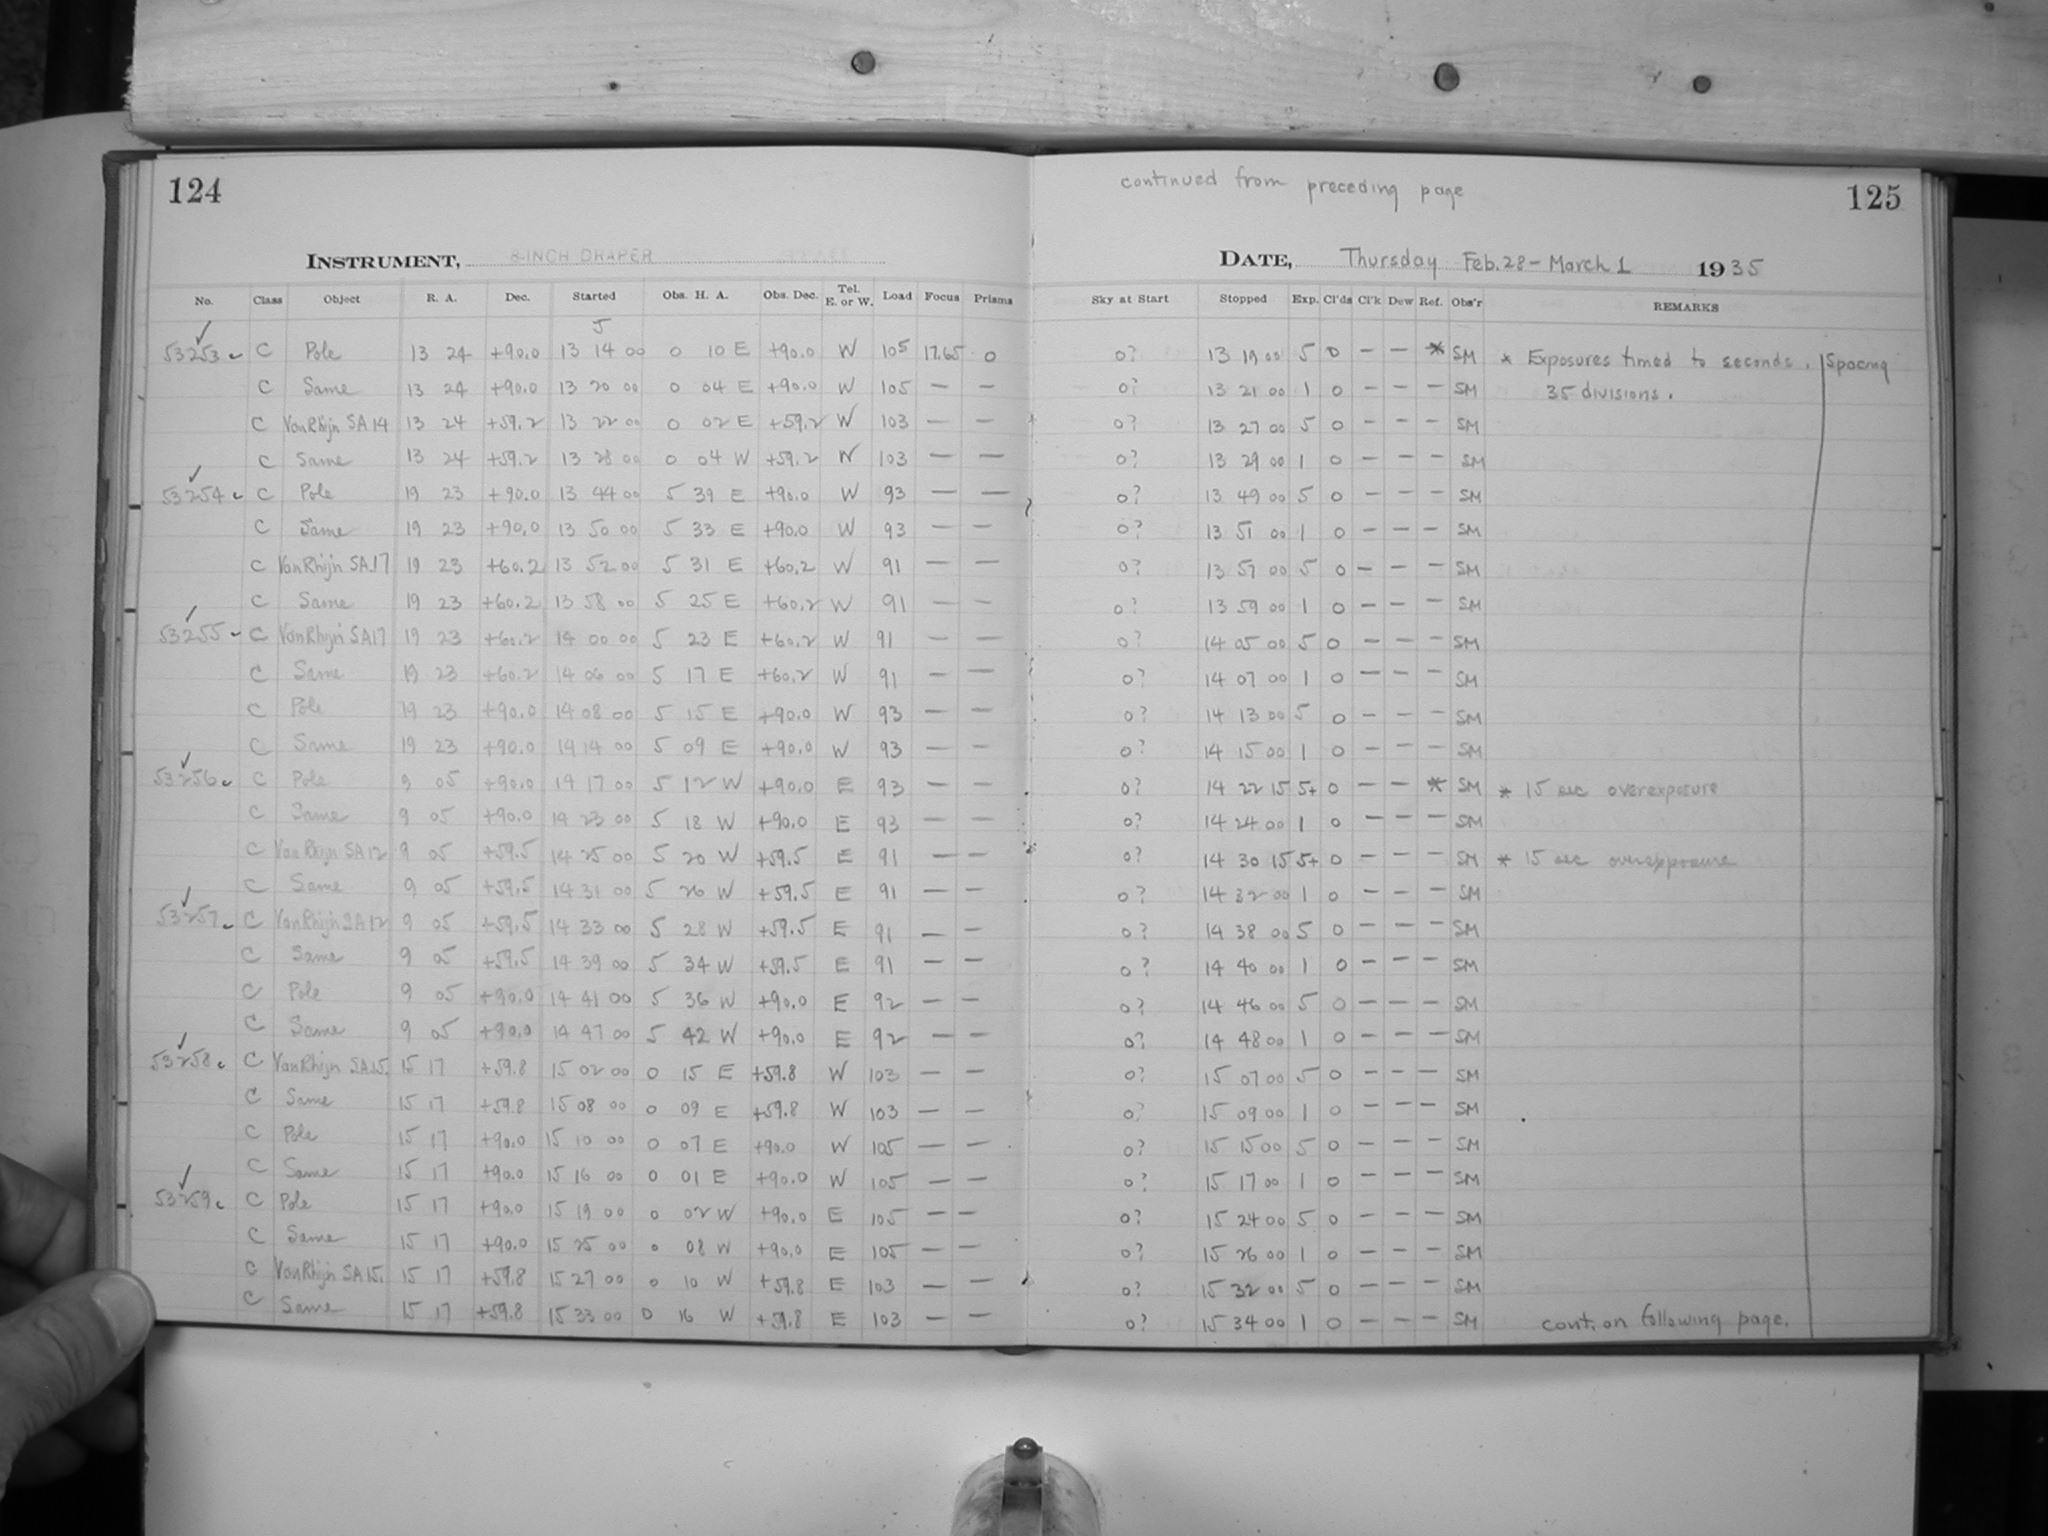 124
continued from preceding page
125
INSTRUMENT, 8-INCH DRAPER
DATE, Thursday Feb. 28 - March 1 1935
No. Class Object R. A. Dec. Started Obs. H. A. Obs. Dec. Tel. E. or W. Load Focus Prisms Sky at Start Stopped Exp. Cl'ds Cl'k Dew Ref. Obs'r REMARKS
5
53253 ✓ C Pole 13 24 +90.0 13 14 00 0 10 E +90.0 W 105 17.65 0 0? 13 19 00 5 0 — — * SM * Exposures timed to seconds. Spacing
C Same 13 24 +90.0 13 20 00 0 04 E +90.0 W 105 — — 0? 13 21 00 1 0 — — — SM 35 divisions.
C Van Rhijn SA 14 13 24 +59.2 13 22 00 0 02 E +59.2 W 103 — — 0? 13 27 00 5 0 — — — SM
C Same 13 24 +59.2 13 28 00 0 04 W +59.2 W 103 — — 0? 13 29 00 1 0 — — — SM
53254 ✓ C Pole 19 23 +90.0 13 44 00 5 39 E +90.0 W 93 — — 0? 13 49 00 5 0 — — — SM
C Same 19 23 +90.0 13 50 00 5 33 E +90.0 W 93 — — 0? 13 51 00 1 0 — — — SM
C Van Rhijn SA.17 19 23 +60.2 13 52 00 5 31 E +60.2 W 91 — — 0? 13 57 00 5 0 — — — SM
C Same 19 23 +60.2 13 58 00 5 25 E +60.2 W 91 — — 0? 13 59 00 1 0 — — — SM
53255 ✓ C Van Rhijn SA17 19 23 +60.2 14 00 00 5 23 E +60.2 W 91 — — 0? 14 05 00 5 0 — — — SM
C Same 19 23 +60.2 14 06 00 5 17 E +60.2 W 91 — — 0? 14 07 00 1 0 — — — SM
C Pole 19 23 +90.0 14 08 00 5 15 E +90.0 W 93 — — 0? 14 13 00 5 0 — — — SM
C Same 19 23 +90.0 14 14 00 5 09 E +90.0 W 93 — — 0? 14 15 00 1 0 — — — SM
53256 ✓ C Pole 9 05 +90.0 14 17 00 5 12 W +90.0 E 93 — — 0? 14 22 15 5+ 0 — — * SM * 15 sec overexposure
C Same 9 05 +90.0 14 23 00 5 18 W +90.0 E 93 — — 0? 14 24 00 1 0 — — — SM
C Van Rhijn SA 12 9 05 +59.5 14 25 00 5 20 W +59.5 E 91 — — 0? 14 30 15 5+ 0 — — — SM * 15 sec overexposure
C Same 9 05 +59.5 14 31 00 5 26 W +59.5 E 91 — — 0? 14 32 00 1 0 — — — SM
53257 ✓ C Van Rhijn SA 12 9 05 +59.5 14 33 00 5 28 W +59.5 E 91 — — 0? 14 38 00 5 0 — — — SM
C Same 9 05 +59.5 14 39 00 5 34 W +59.5 E 91 — — 0? 14 40 00 1 0 — — — SM
C Pole 9 05 +90.0 14 41 00 5 36 W +90.0 E 92 — — 0? 14 46 00 5 0 — — — SM
C Same 9 05 +90.0 14 47 00 5 42 W +90.0 E 92 — — 0? 14 48 00 1 0 — — — SM
53258 ✓ C Van Rhijn SA.15. 15 17 +59.8 15 02 00 0 15 E +59.8 W 103 — — 0? 15 07 00 5 0 — — — SM
C Same 15 17 +59.8 15 08 00 0 09 E +59.8 W 103 — — 0? 15 09 00 1 0 — — — SM
C Pole 15 17 +90.0 15 10 00 0 07 E +90.0 W 105 — — 0? 15 15 00 5 0 — — — SM
C Same 15 17 +90.0 15 16 00 0 01 E +90.0 W 105 — — 0? 15 17 00 1 0 — — — SM
53259 ✓ C Pole 15 17 +90.0 15 19 00 0 02 W +90.0 E 105 — — 0? 15 24 00 5 0 — — — SM
C Same 15 17 +90.0 15 25 00 0 08 W +90.0 E 105 — — 0? 15 26 00 1 0 — — — SM
C Van Rhijn SA 15. 15 17 +59.8 15 27 00 0 10 W +59.8 E 103 — — 0? 15 32 00 5 0 — — — SM
C Same 15 17 +59.8 15 33 00 0 16 W +59.8 E 103 — — 0? 15 34 00 1 0 — — — SM cont. on following page.